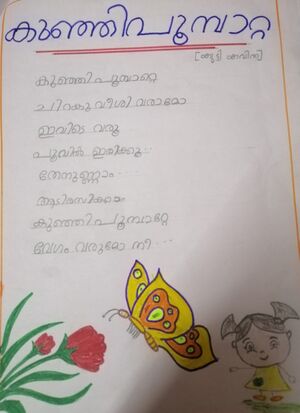 കുഞ്ഞിപൂമ്പാറ്റ
[കുട്ടി കവിത]
കുഞ്ഞി പൂമ്പാറ്റെ
ചിറകു വീശി വരാമോ
ഇവിടെ വരൂ
പൂവിൽ ഇരിക്കൂ...
തേനുണ്ണാം ....
ആടിരസിക്കാം
കുഞ്ഞിപൂമ്പാറ്റേ
വേഗം വരുമോ നീ ....